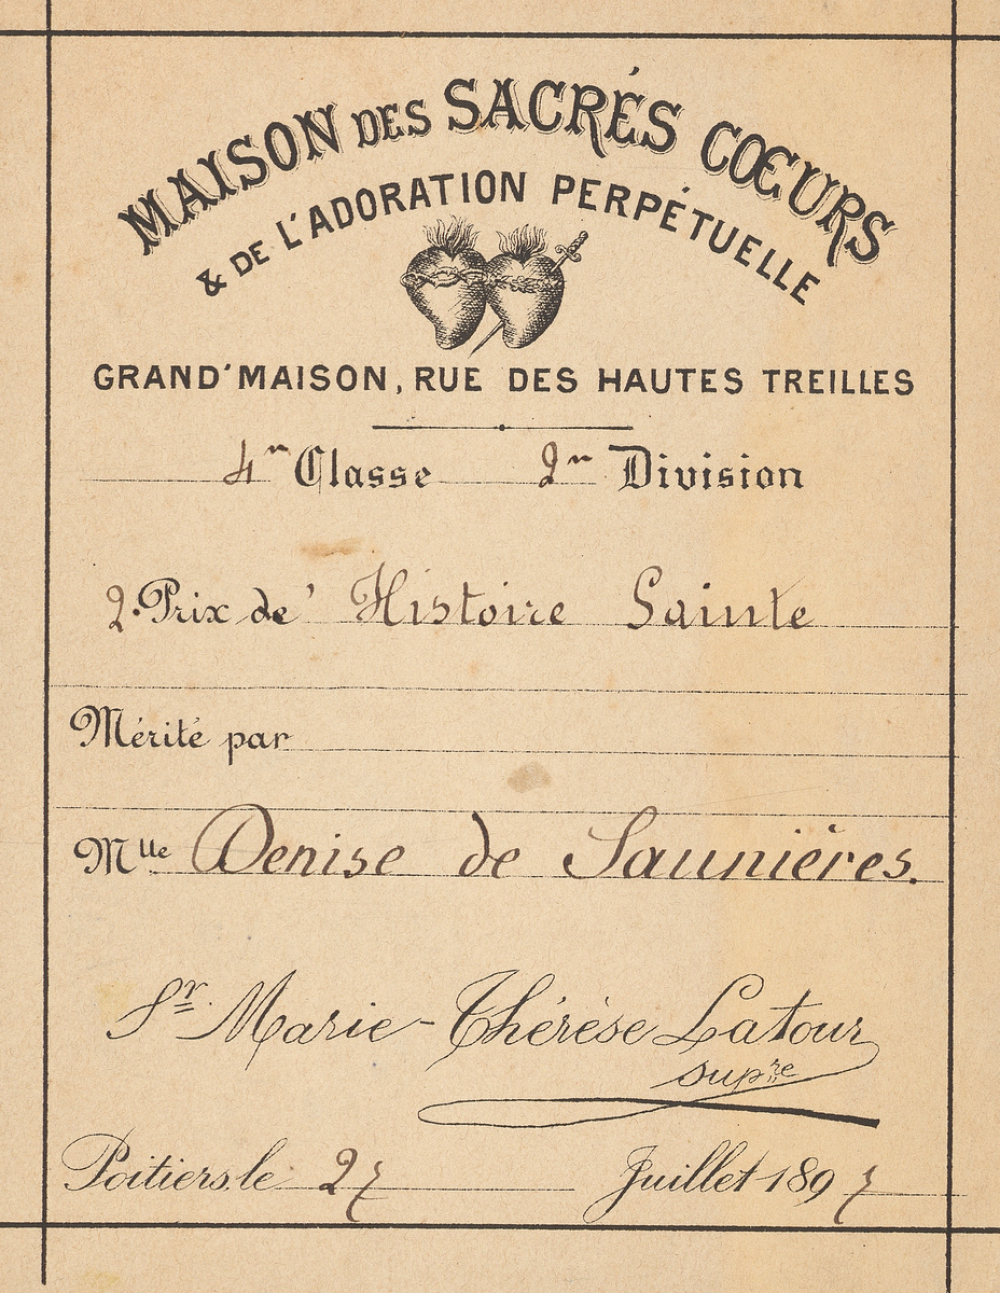 MAISON DES SACRÉS CŒURS
& DE L'ADORATION PERPÉTUELLE
GRAND'MAISON, RUE DES HAUTES TREILLES
4me Classe 2me Division
2. Prix de' Histoire Sainte
Mérité par
Mlle Denise de Saunières.
Sr Marie-Thérèse Latour
supre
Poitiers, le 27 Juillet 1897